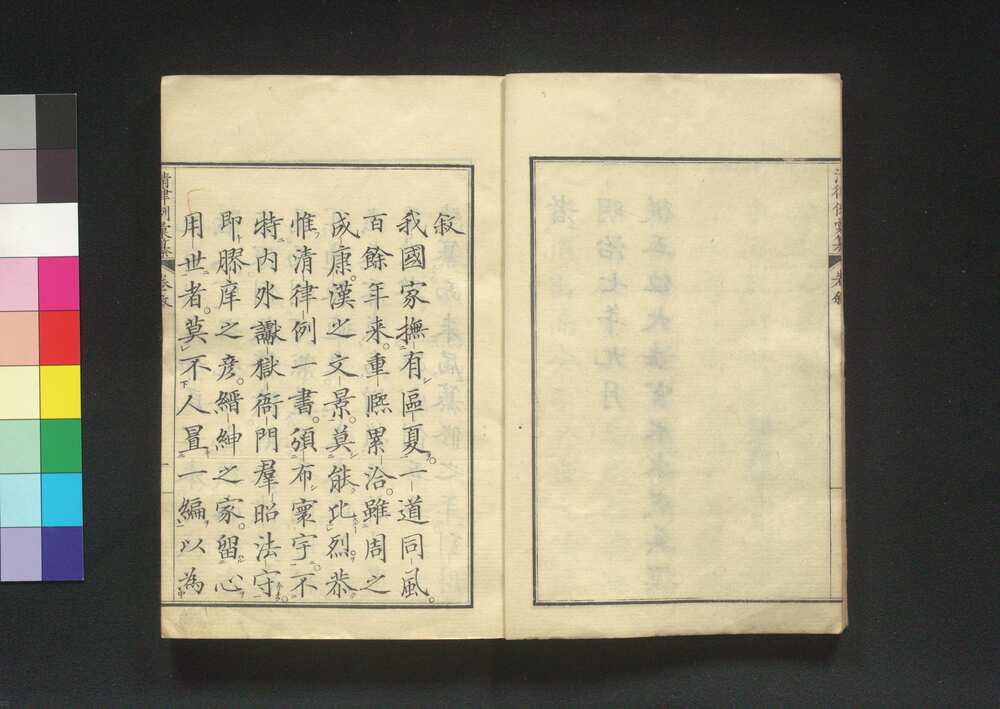 清律例彙纂 卷叙
叙
我國家撫有區夏。一道同風。
百餘年來。重熈累洽。雖周之
成康。漢之文景。莫能比烈。恭
惟清律例一書。頒布寰宇。不
特内外讞獄衙門羣昭法守。
即膠庠之彦。縉紳之家。留心
用世者。莫不人置一編。以為
清律例彙纂 卷叙